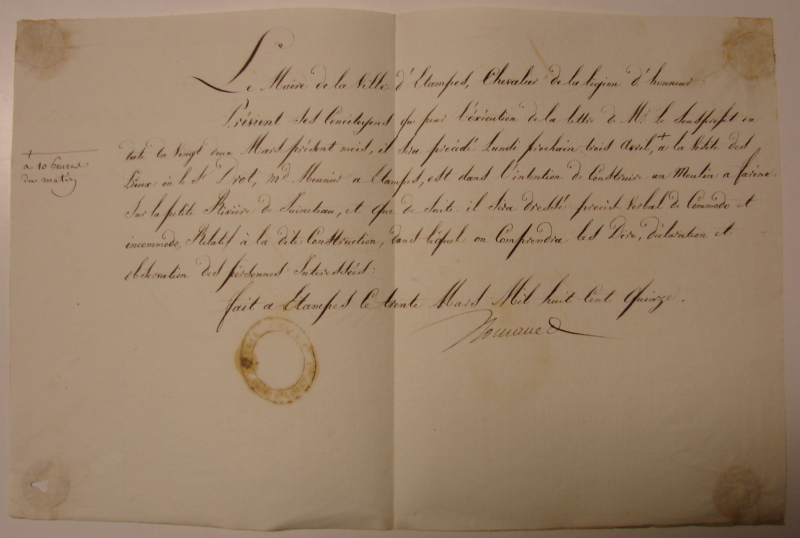 Le Maire de la Ville d'Etampes, Chevalier de la légion d'honneur
Prévient ses Concitoyens que pour l'éxécution de la lettre de Mr. le Souspréfet en
date du Vingt deux Mars présent mois, il sera procédé Lundi prochain trois Avril, + a la Visite des
+
à 10 heures
du matin
Lieux ou le Sr. Drot, md. Meunier a Etampes, est dans l'intention de Construire un Moulin a farine
Sur la petite Rivière de Juineteau, et que de suite il Sera dressé procès verbal de Commodo et
incommodo, Relatif à la dite Construction, dans lequel on Comprendra les Dire, déclaration et
observation des personnes Interressées:
fait a Etampes Ce trente Mars Mil huit Cent Quinze.